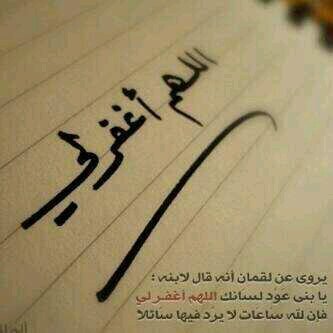 اللهم أغفر لي
يروى عن لقمان أنه قال لابنه :
يا بنى عود لسانك اللهم أغفر لي
فإن لله ساعات لا يرد فيها سائلا